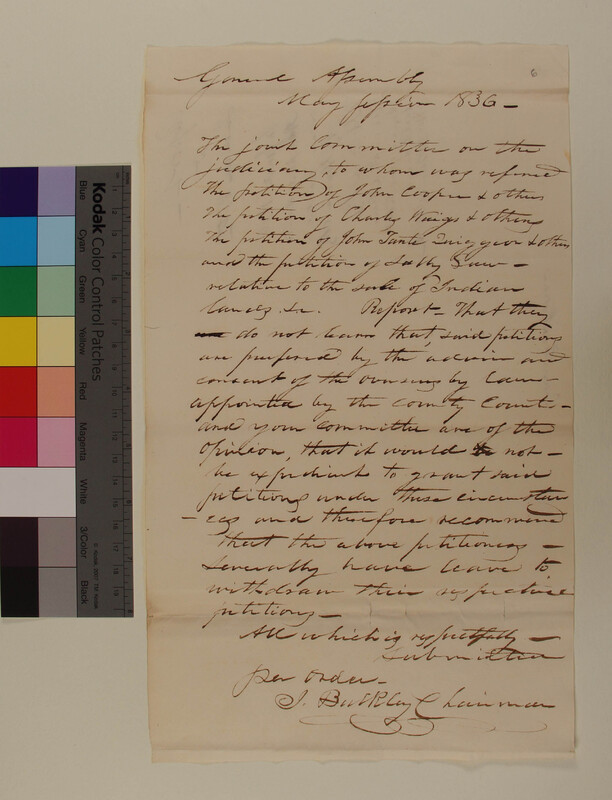 6
General Assembly
May Session 1836 –
The joint Committee on the
judiciary, to whom was refered
the petition of John Cooper & others
the petition of Charles & others
the petition of John & others
and the petition of Sally Law –
relative to the sale of Indian
lands &c. Report – That they
do not learn that said petitions
are prefered by the advice and
consent of the overseers by law –
appointed by the County Courts –
and your committee are of the
opinion, that it would not –
be expedient to grant said
petitions under these circumstan
– ces and therefore recommend
that the above petitioners –
severally have leave to
withdraw their respective
petitions –
All which is respectfully –
submitted
per order –
J. Bulkley Chairman
Kodak Color Control Patches
Blue
Cyan
Green
Yellow
Red
Magenta
White
3/Color
Black